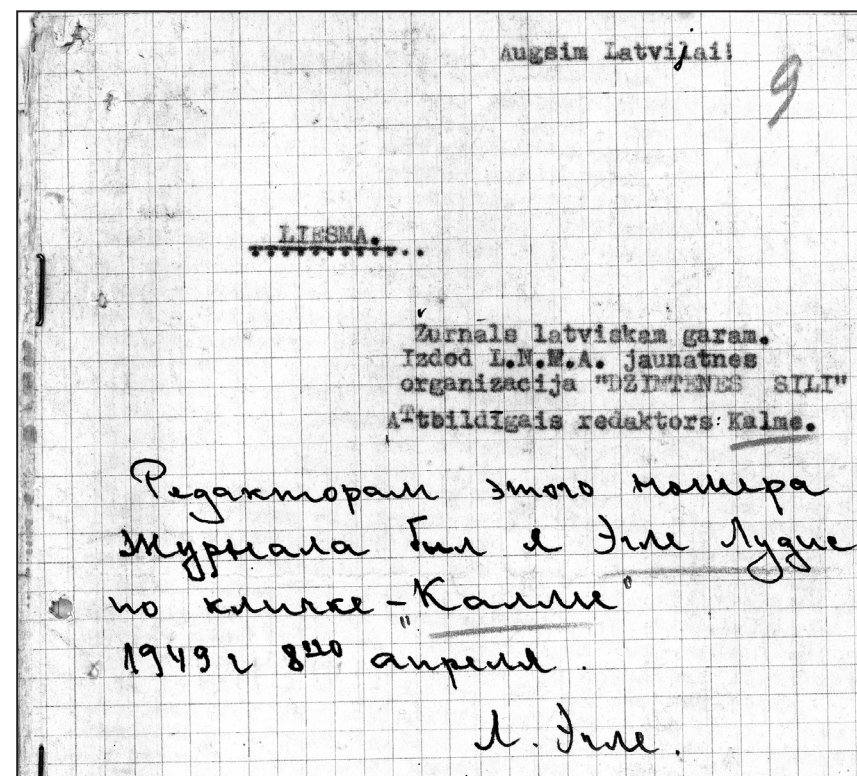 Augsim Latvijai!
9
LIESMA.
Žurnals latviskam garam.
Izdod L.N.M.A. jaunatnes
organizacija "DZIMTENES SILI"
Attbildīgais redaktors: Kalme.
Редакторам этого номера
журнала бил я Эгле Лудис
по кличке - "Калме"
1949 г 8го апреля.
Л. Эгле.